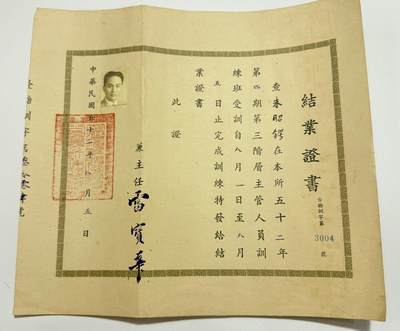 結業證書
台糖訓字第 3004 號
查朱昭鍔在本所五十二年
第四期第三階層主管人員訓
練班受訓自八月一日至八月
五日止完成訓練特發給結
業證書
此證
兼主任 雷寶華
中華民國五十二年八月五日